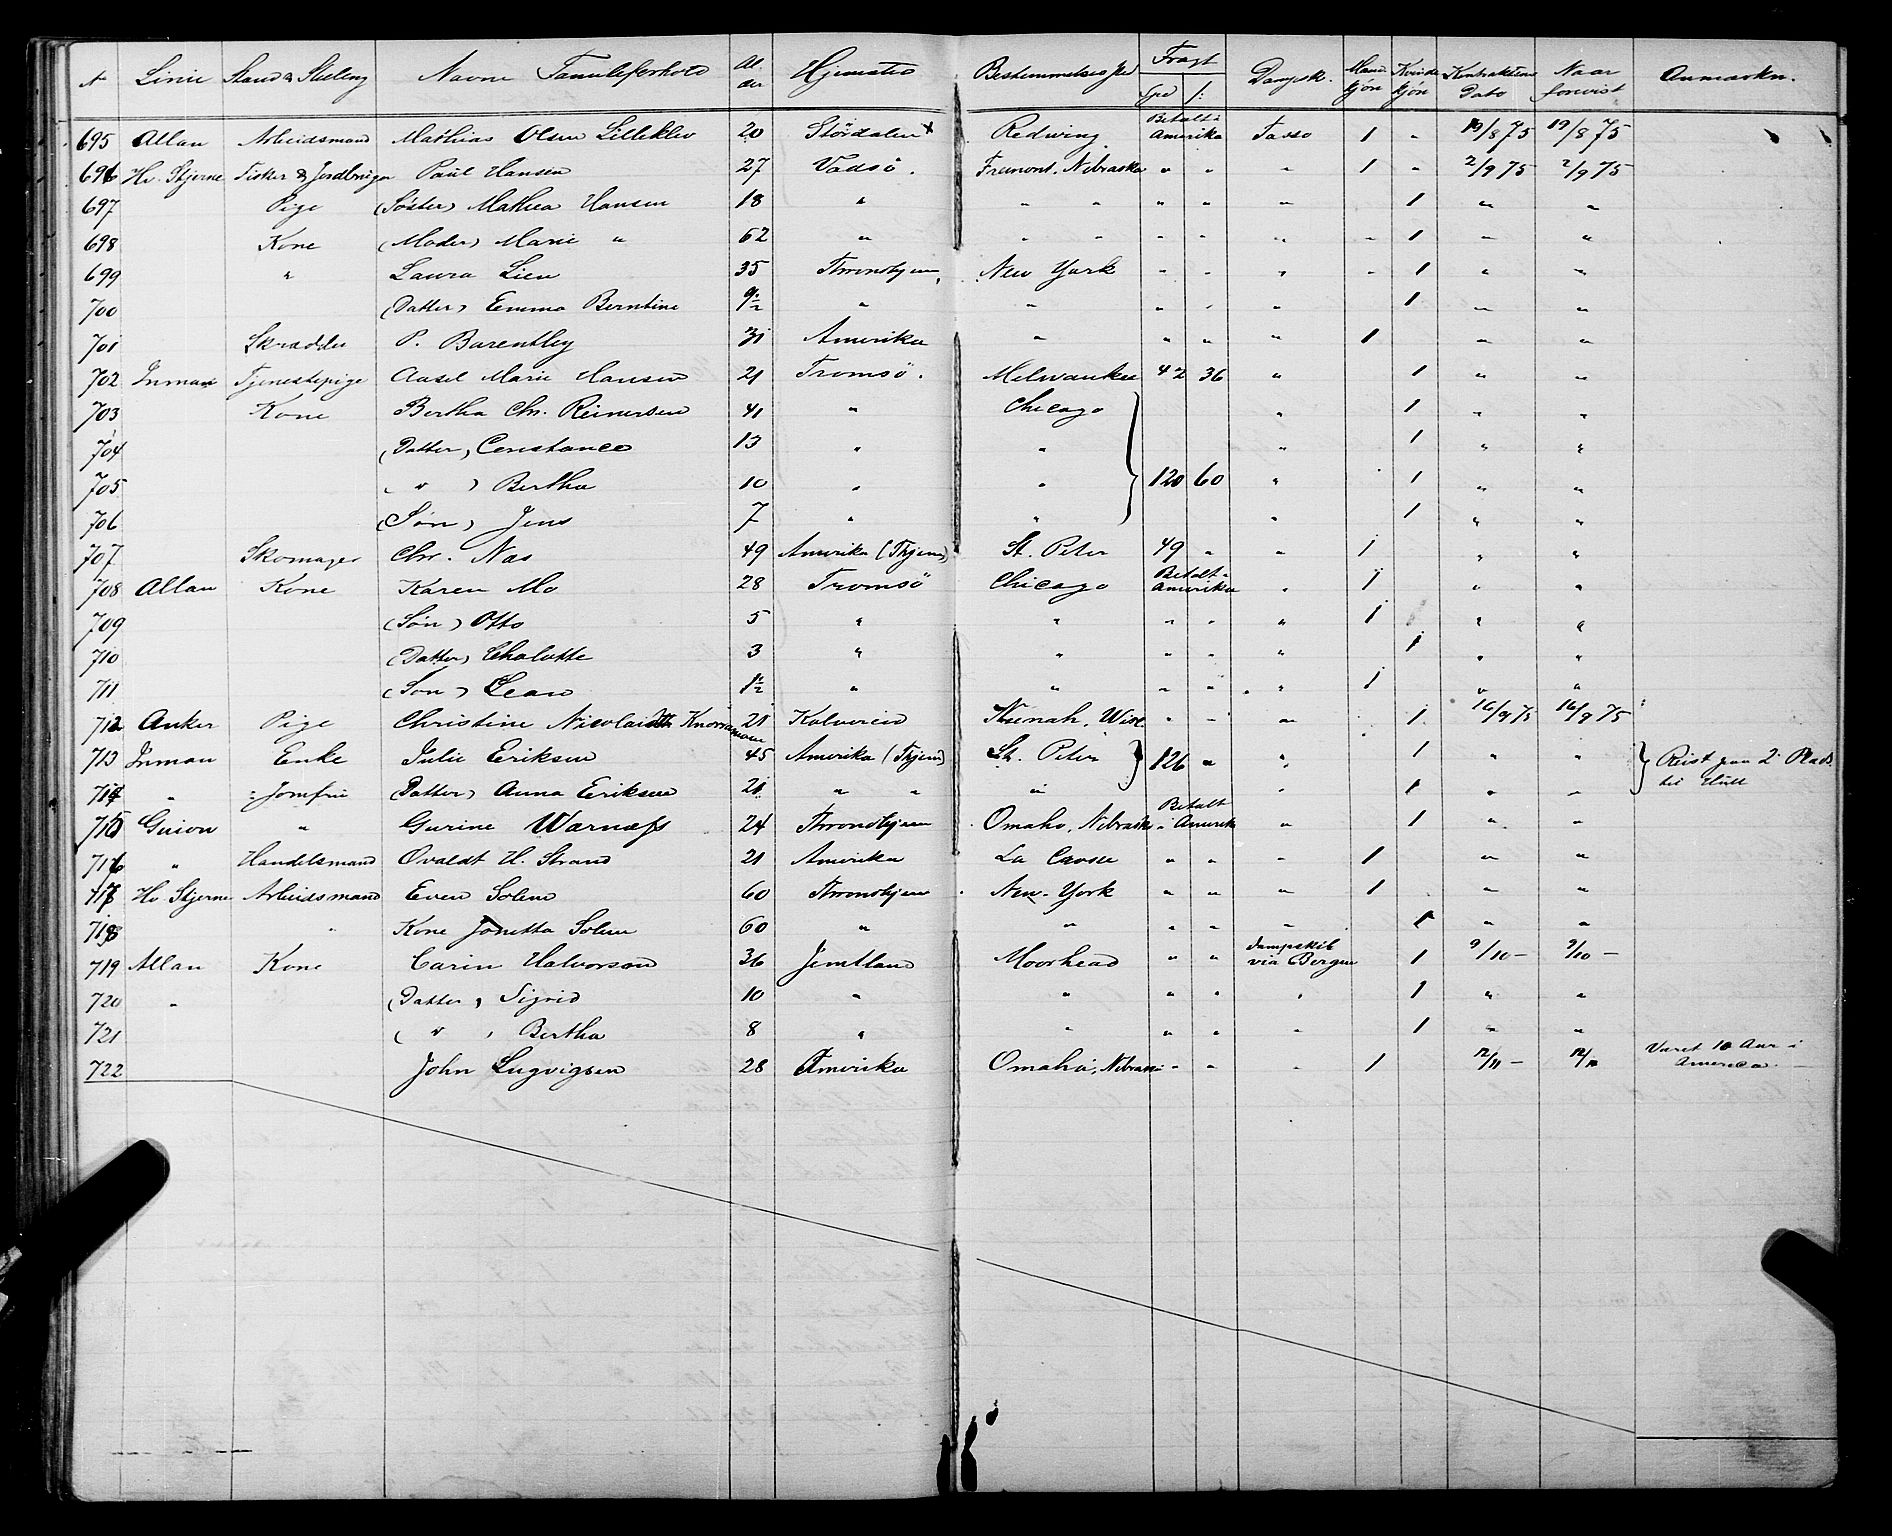 № Linie Stand & Stilling Navne Familieforhold Alder Hjemsted Bestemmelsessted Fragt Spd ſ: Dampsk. Mandkjøn Kvindekjøn Kontraktens Dato Naar forevist Anmærkn.
695 Allan Arbeidsmand Mathias Olsen Lilleklev 20 Stördalen Redwing Betalt i Amerika Tasso 1 " 19/8 75 19/8 75
696 Hv. Stjerne Fisker & Jordbruger Paul Hansen 27 Vadsö. Fremont, Nebraska " " " 1 " 2/9 75 2/9 75
697 Pige (Søster) Mathea Hansen 18 " " " " " " 1 " "
698 Kone (Moder) Marie " 62 " " " " " " " 1 " "
699 " Laura Lien 35 Throndhjem, New York " " " " 1 " "
700 (Datter) Emma Berntine 9½ " " " " " 1 " "
701 Skrædder P. Barentley 31 Amerika " " " " 1 " "
702 Inman Tjenestepige Aasel Marie Hansen 21 Tromsö. Milwaukee 42 36 " 1 " "
703 Kone Bertha Chr. Reinersen 41 " Chicago " 1 " "
704 (Datter) Constance 13 " " " 1 " "
705 ( " ) Bertha 10 " " 120 60 " 1 " "
706 (Søn) Jens 7 " " " 1 " "
707 Skomager Chr. Nas 49 Amerika (Thjem) St. Peter 49 " " 1 " "
708 Allan Kone Karen Mo 28 Tromsö Chicago Betalt i Amerika " 1 " "
709 (Søn) Otto 5 " " " " " 1 " "
710 (Datter) Chalotte 3 " " " " " 1 " "
711 (Søn) Lean 1½ " " " " " 1 " "
712 Anker Pige Christine Nicolaidtr 21 Kolvereid Wisc. " " " 1 16/9 75 16/9 75
713 Inman Enke Julie Eriksen 45 Amerika (Thjem) St. Peter 126 " " 1 " " Reist paa 2' Plads
714 " Jomfru (Datter) Anna Eriksen 21 " " " " 1 " " til Hull
715 Guion " Gurine Warnæss 24 Throndhjem Omaha, Nebrask Betalt i Amerik " 1 " "
716 " Handelsmand Ovaldt H. Strand 21 Amerika La Crosse " " " 1 " "
717 Hv. Stjerne Arbeidsmand Even Solem 60 Throndhjem New-York " " " 1 " "
718 " Kone Jonetta Solem 60 " " " " " 1 " "
719 Allan Kone Carin Halvorson 36 Jemtland Moorhead " " Dampskib via Bergen 1 9/10 – 9/10 –
720 " (Datter) Sigrid 10 " " " " " 1 " "
721 ( " ) Bertha 8 " " " " " 1 " "
722 John Lugvigsen 28 Amerika Omaha, Nebras " " " 1 12/11 – Været 10 Aar i America.